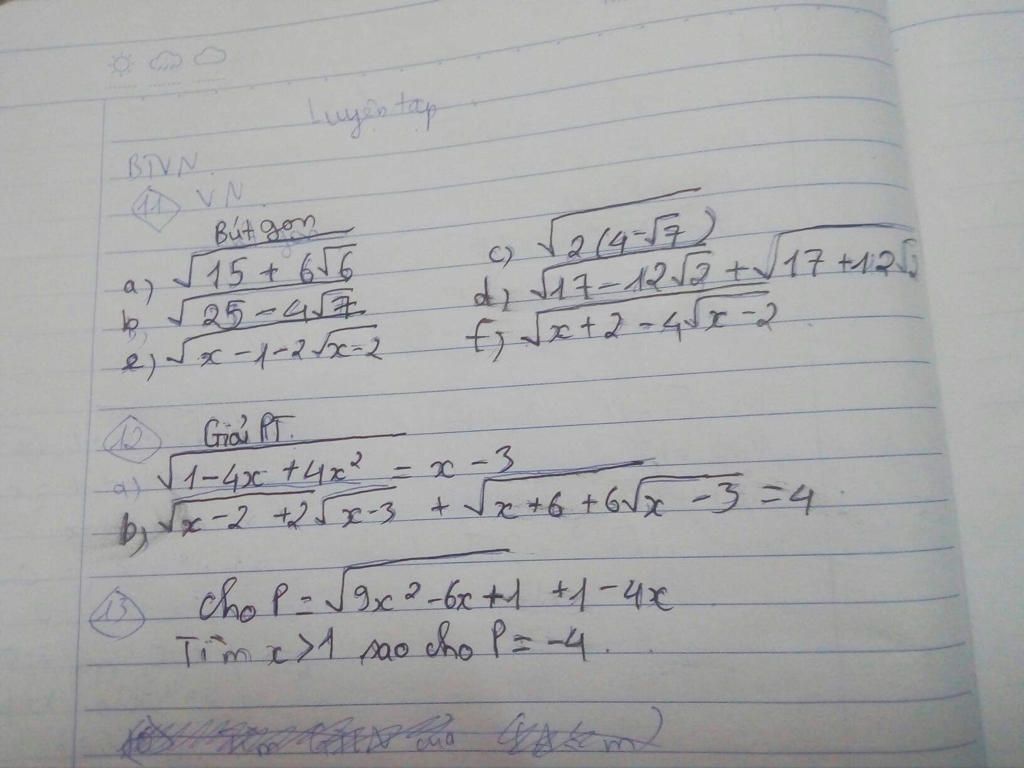 Luyện tập
BTVN.
11 VN.
Rút gọn
a) √15 + 6√6
c) √2(4-√7)
b) √25 - 4√7
d) √17-12√2 + √17+12√2
e) √x-1-2√x-2
f) √x+2-4√x-2
12 Giải PT.
a) √1-4x+4x² = x-3
b) √x-2+2√x-3 + √x+6+6√x-3 = 4
13 Cho P = √9x²-6x+1 + 1-4x
Tìm x>1 sao cho P = -4.